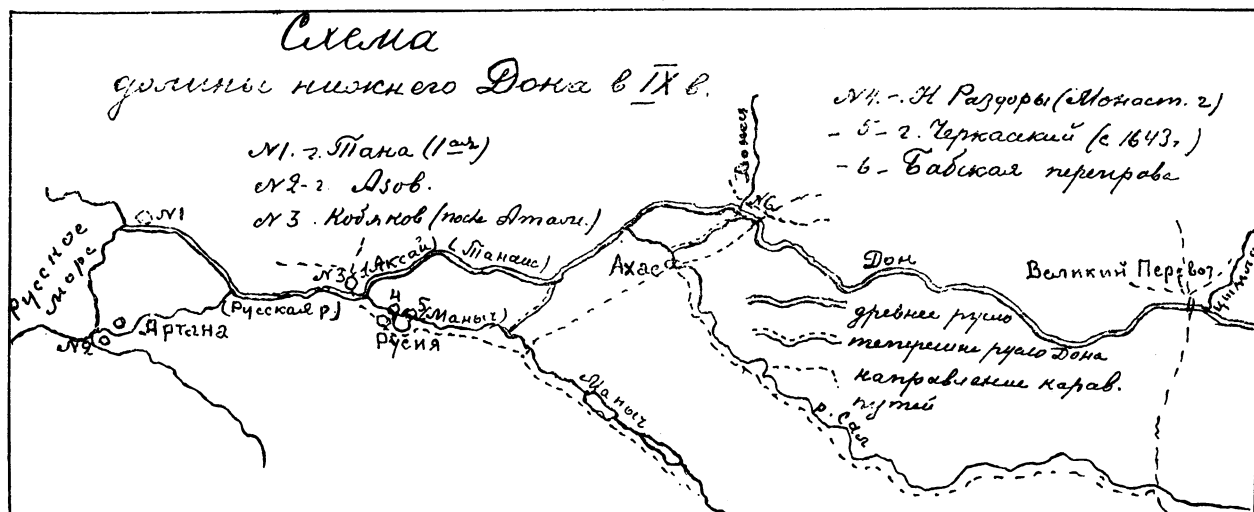 Схема
долины нижнего Дона в IX в.
№1. г. Тана (1ая)
№2 - г. Азов.
№3. Кобяков (после Атами.)
№4. - Н Раздоры (Монаст. г)
- 5 - г. Черкасский (с 1643 г)
- 6 - Бабская переправа
Русское море
№1
№2
Артана
(Русская р.)
№3
(Аксай)
(Танаис)
4
5
(Маныч)
Русия
Маныч
Ахас
Донец
№6
Дон
Великий Перевоз.
Цымла
р. Сал
древнее русло
теперешне русло Дона
направление карав.
путей